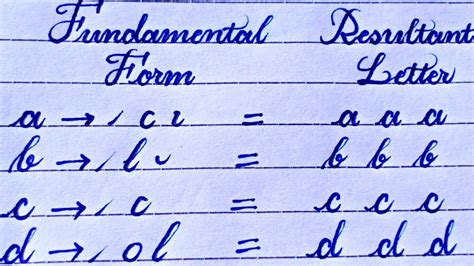 Fundamental Resultant
Form Letter
a → / c ι = a a a
b → / l ᴗ = b b b
c → / c = c c c
d → / o l = d d d